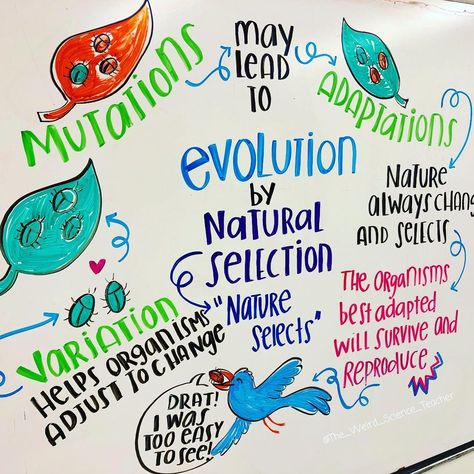 MUTATIONS
MAY
LEAD
TO
ADAPTATIONS
EVOLUTION
BY
NATURAL
SELECTION
"NATURE
SELECTS"
NATURE
ALWAYS
AND SELECTS
THE ORGANISMS
best ADAPTED
will SURVIVE AND
REPRODUCE
VARIATION
HELPS ORGANISMS
ADJUST TO CHANGE
DRAT!
I WAS
TOO EASY
TO SEE!
@The_Weird_Science_Teacher